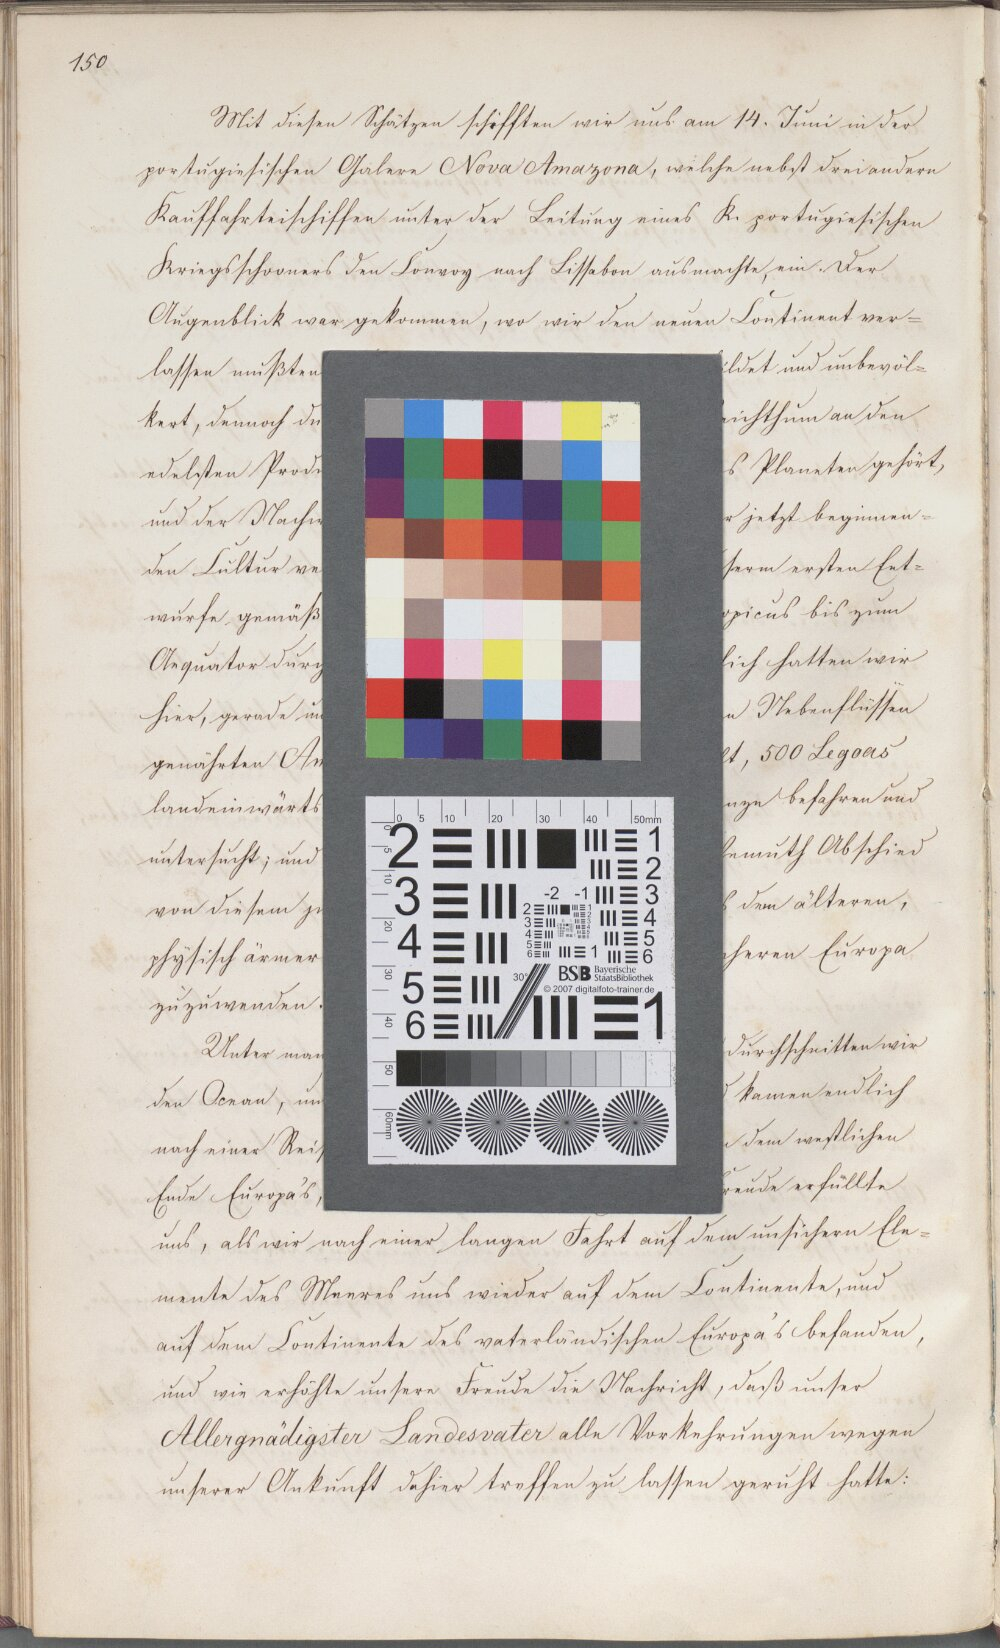 150
Mit diesen Schätzen schifften wir uns am 14. Juni in der
portugiesischen Galere Nova Amazona, welche nebst drei andern
Kauffahrteischiffen unter der Leitung eines K. portugiesischen
Kriegsschooners den Convoy nach Lissabon ausmachte, ein. Der
Augenblick war gekommen, wo wir den neuen Continent ver=
lassen mußten ildet und unbevöl=
kert, dennoch du eichthum an den
edelsten Produ s Planeten gehört,
und der Nachw r jetzt beginnen=
den Cultur ve serm ersten Ent=
wurfe gemäß opicus bis zum
Aequator durch lich hatten wir
hier, gerade un n Nebenflüssen
genährten Am lt, 500 Legoas
landeinwärts nze befahren und
untersucht; und hmuth Abschied
von diesem zu s dem älteren,
physisch ärmer cheren Europa
zuzuwenden.
Unter man durchschnitten wir
den Ocean, un d kamen endlich
nach einer Reis n dem westlichen
Ende Europa's, reude erfüllte
uns, als wir nach einer langen Fahrt auf dem unsichern Ele=
mente des Meeres uns wieder auf dem Continente, und
auf dem Continente des vaterländischen Europa's befanden,
und wie erhöhte unsere Freude die Nachricht, daß unser
Allergnädigster Landesvater alle Vorkehrungen wegen
unserer Ankunft dahier treffen zu lassen geruht hatte:
0 5 10 20 30 40 50mm
0 5 10 20 30 40 50 60mm
2 1
2
3 -2 -1 3
4 4
5 5
6 6
30°
BSB Bayerische
StaatsBibliothek
© 2007 digitalfoto-trainer.de
1